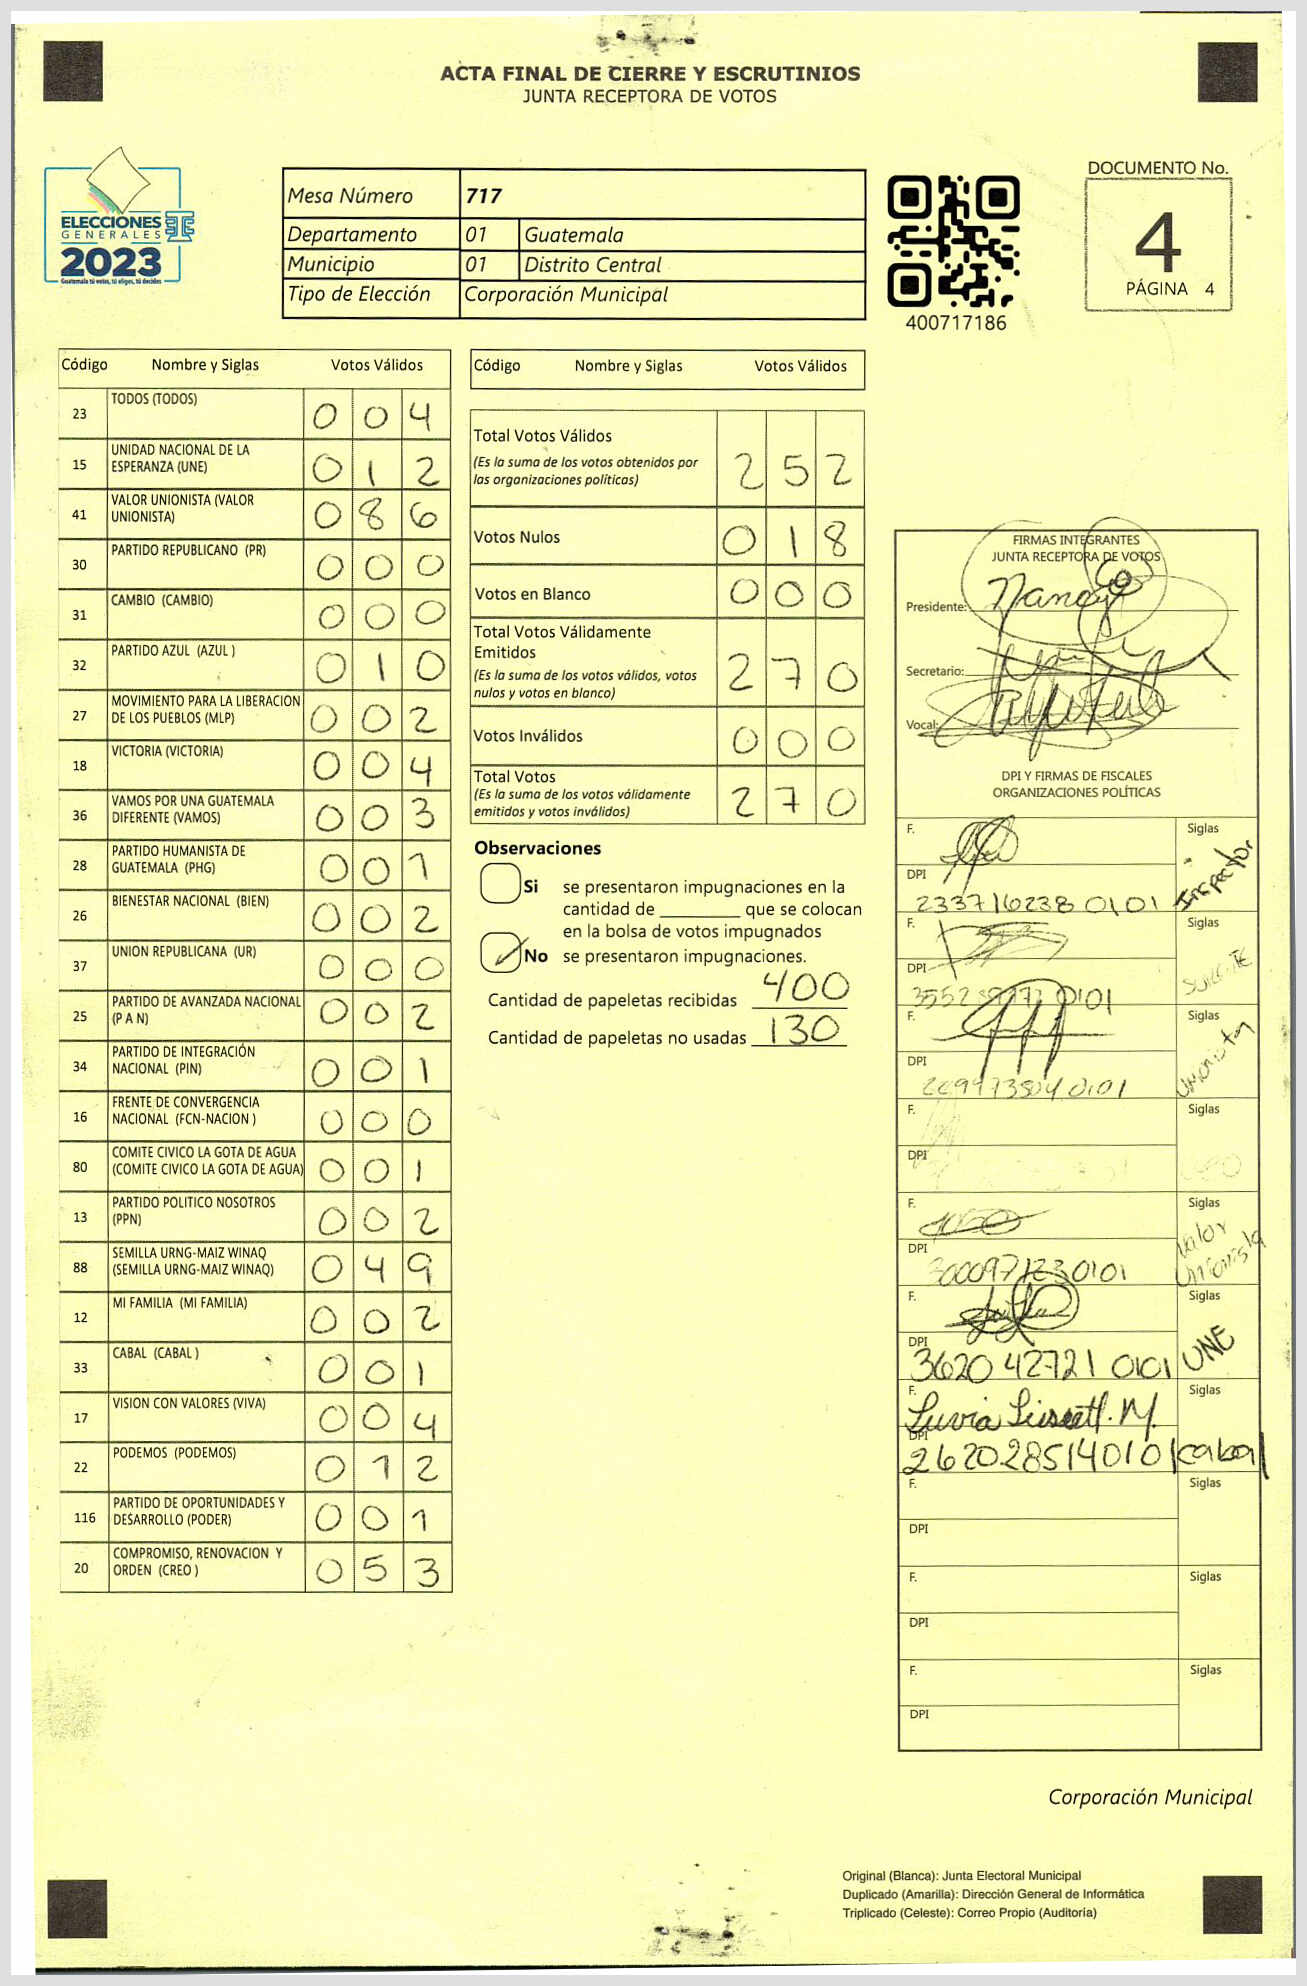 ACTA FINAL DE CIERRE Y ESCRUTINIOS
JUNTA RECEPTORA DE VOTOS
ELECCIONES
GENERALES
2023
Guatemala tú votas, tú eliges, tú decides
Mesa Número 717
Departamento 01 Guatemala
Municipio 01 Distrito Central
Tipo de Elección Corporación Municipal
400717186
DOCUMENTO No.
4
PÁGINA 4
Código Nombre y Siglas Votos Válidos
23 TODOS (TODOS) 0 0 4
15 UNIDAD NACIONAL DE LA
ESPERANZA (UNE) 0 1 2
41 VALOR UNIONISTA (VALOR
UNIONISTA) 0 8 6
30 PARTIDO REPUBLICANO (PR) 0 0 0
31 CAMBIO (CAMBIO) 0 0 0
32 PARTIDO AZUL (AZUL ) 0 1 0
27 MOVIMIENTO PARA LA LIBERACION
DE LOS PUEBLOS (MLP) 0 0 2
18 VICTORIA (VICTORIA) 0 0 4
36 VAMOS POR UNA GUATEMALA
DIFERENTE (VAMOS) 0 0 3
28 PARTIDO HUMANISTA DE
GUATEMALA (PHG) 0 0 1
26 BIENESTAR NACIONAL (BIEN) 0 0 2
37 UNION REPUBLICANA (UR) 0 0 0
25 PARTIDO DE AVANZADA NACIONAL
(P A N) 0 0 2
34 PARTIDO DE INTEGRACIÓN
NACIONAL (PIN) 0 0 1
16 FRENTE DE CONVERGENCIA
NACIONAL (FCN-NACION ) 0 0 0
80 COMITE CIVICO LA GOTA DE AGUA
(COMITE CIVICO LA GOTA DE AGUA) 0 0 1
13 PARTIDO POLITICO NOSOTROS
(PPN) 0 0 2
88 SEMILLA URNG-MAIZ WINAQ
(SEMILLA URNG-MAIZ WINAQ) 0 4 9
12 MI FAMILIA (MI FAMILIA) 0 0 2
33 CABAL (CABAL ) 0 0 1
17 VISION CON VALORES (VIVA) 0 0 4
22 PODEMOS (PODEMOS) 0 1 2
116 PARTIDO DE OPORTUNIDADES Y
DESARROLLO (PODER) 0 0 1
20 COMPROMISO, RENOVACION Y
ORDEN (CREO ) 0 5 3
Código Nombre y Siglas Votos Válidos
Total Votos Válidos
(Es la suma de los votos obtenidos por
las organizaciones políticas) 2 5 2
Votos Nulos 0 1 8
Votos en Blanco 0 0 0
Total Votos Válidamente
Emitidos
(Es la suma de los votos válidos, votos
nulos y votos en blanco) 2 7 0
Votos Inválidos 0 0 0
Total Votos
(Es la suma de los votos válidamente
emitidos y votos inválidos) 2 7 0
Observaciones
Si se presentaron impugnaciones en la
cantidad de ________ que se colocan
en la bolsa de votos impugnados
No se presentaron impugnaciones.
Cantidad de papeletas recibidas 400
Cantidad de papeletas no usadas 130
FIRMAS INTEGRANTES
JUNTA RECEPTORA DE VOTOS
Presidente: Nancy
Secretario:
Vocal:
DPI Y FIRMAS DE FISCALES
ORGANIZACIONES POLÍTICAS
F. Siglas
Inspector
DPI
2337162380101
F. Siglas
DPI
F. Siglas
Unionista
DPI
F. Siglas
DPI
F. Siglas
Valor
Unionista
DPI
3000971230101
F. Siglas
UNE
DPI
3620 42721 0101
F. Siglas
DPI
2620285140101 cabal
F. Siglas
DPI
F. Siglas
DPI
F. Siglas
DPI
Corporación Municipal
Original (Blanca): Junta Electoral Municipal
Duplicado (Amarilla): Dirección General de Informática
Triplicado (Celeste): Correo Propio (Auditoría)